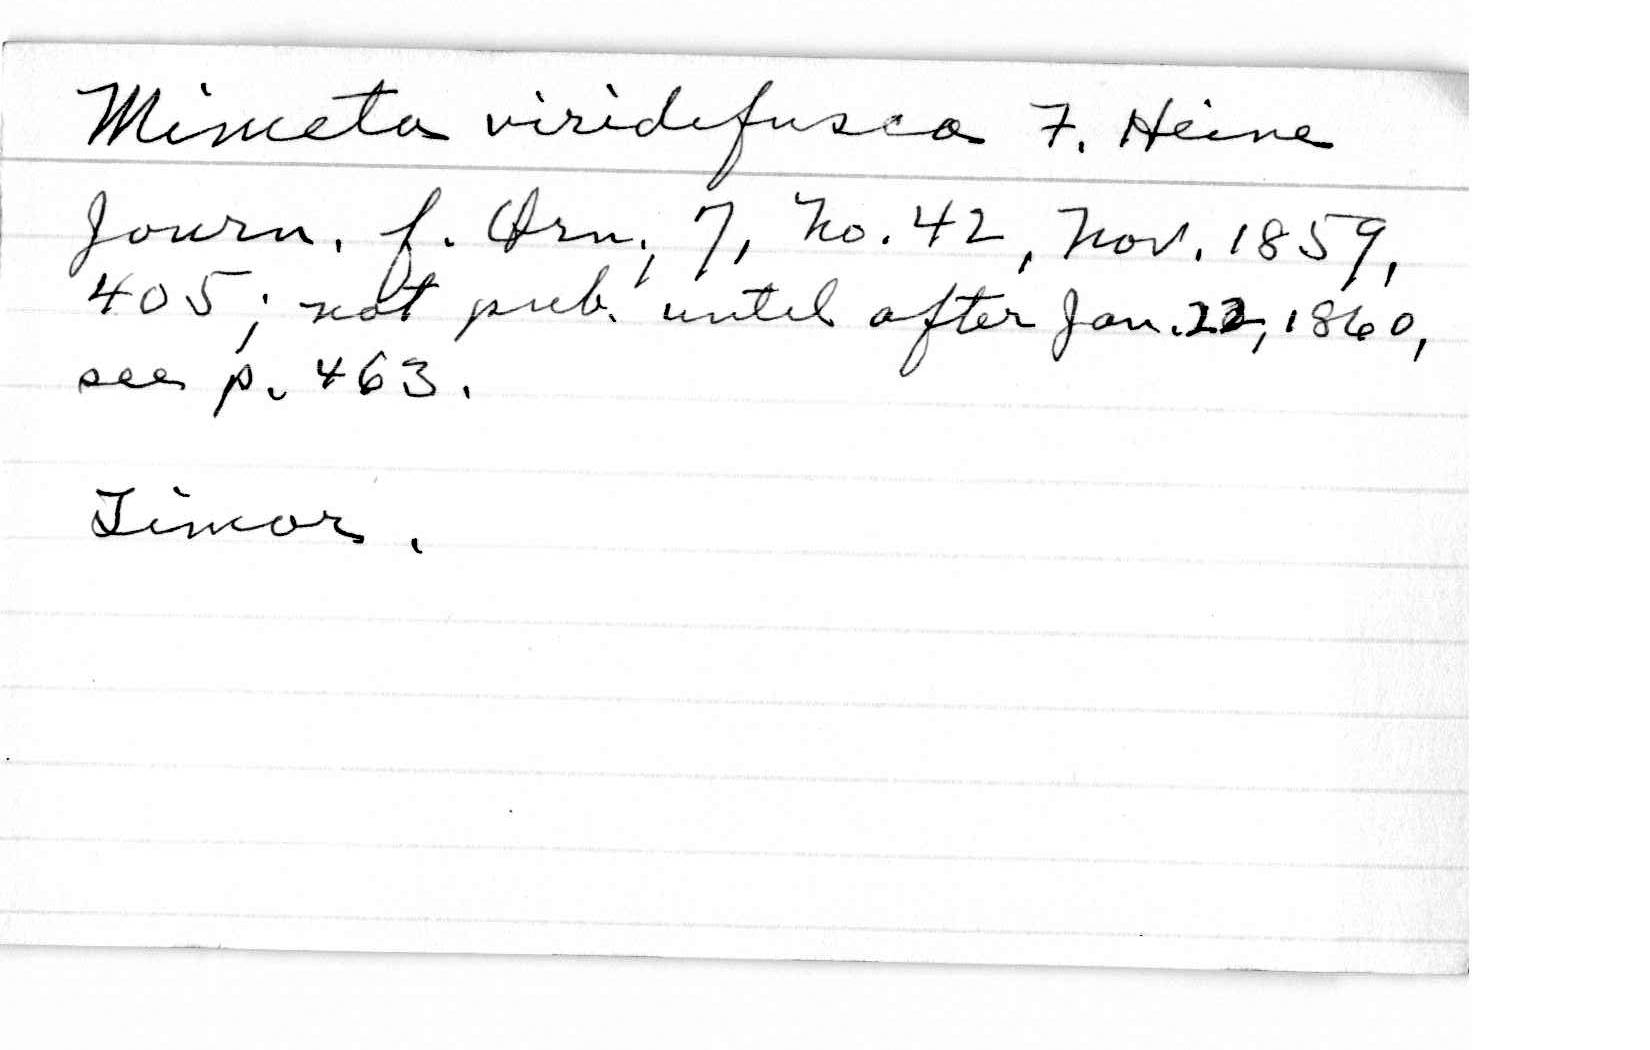 Mimeta viridifusca F. Heine
Journ. f. Orn., 7, No. 42, Nov. 1859,
405; not pub. until after Jan. 22, 1860,
see p. 463.
Timor.